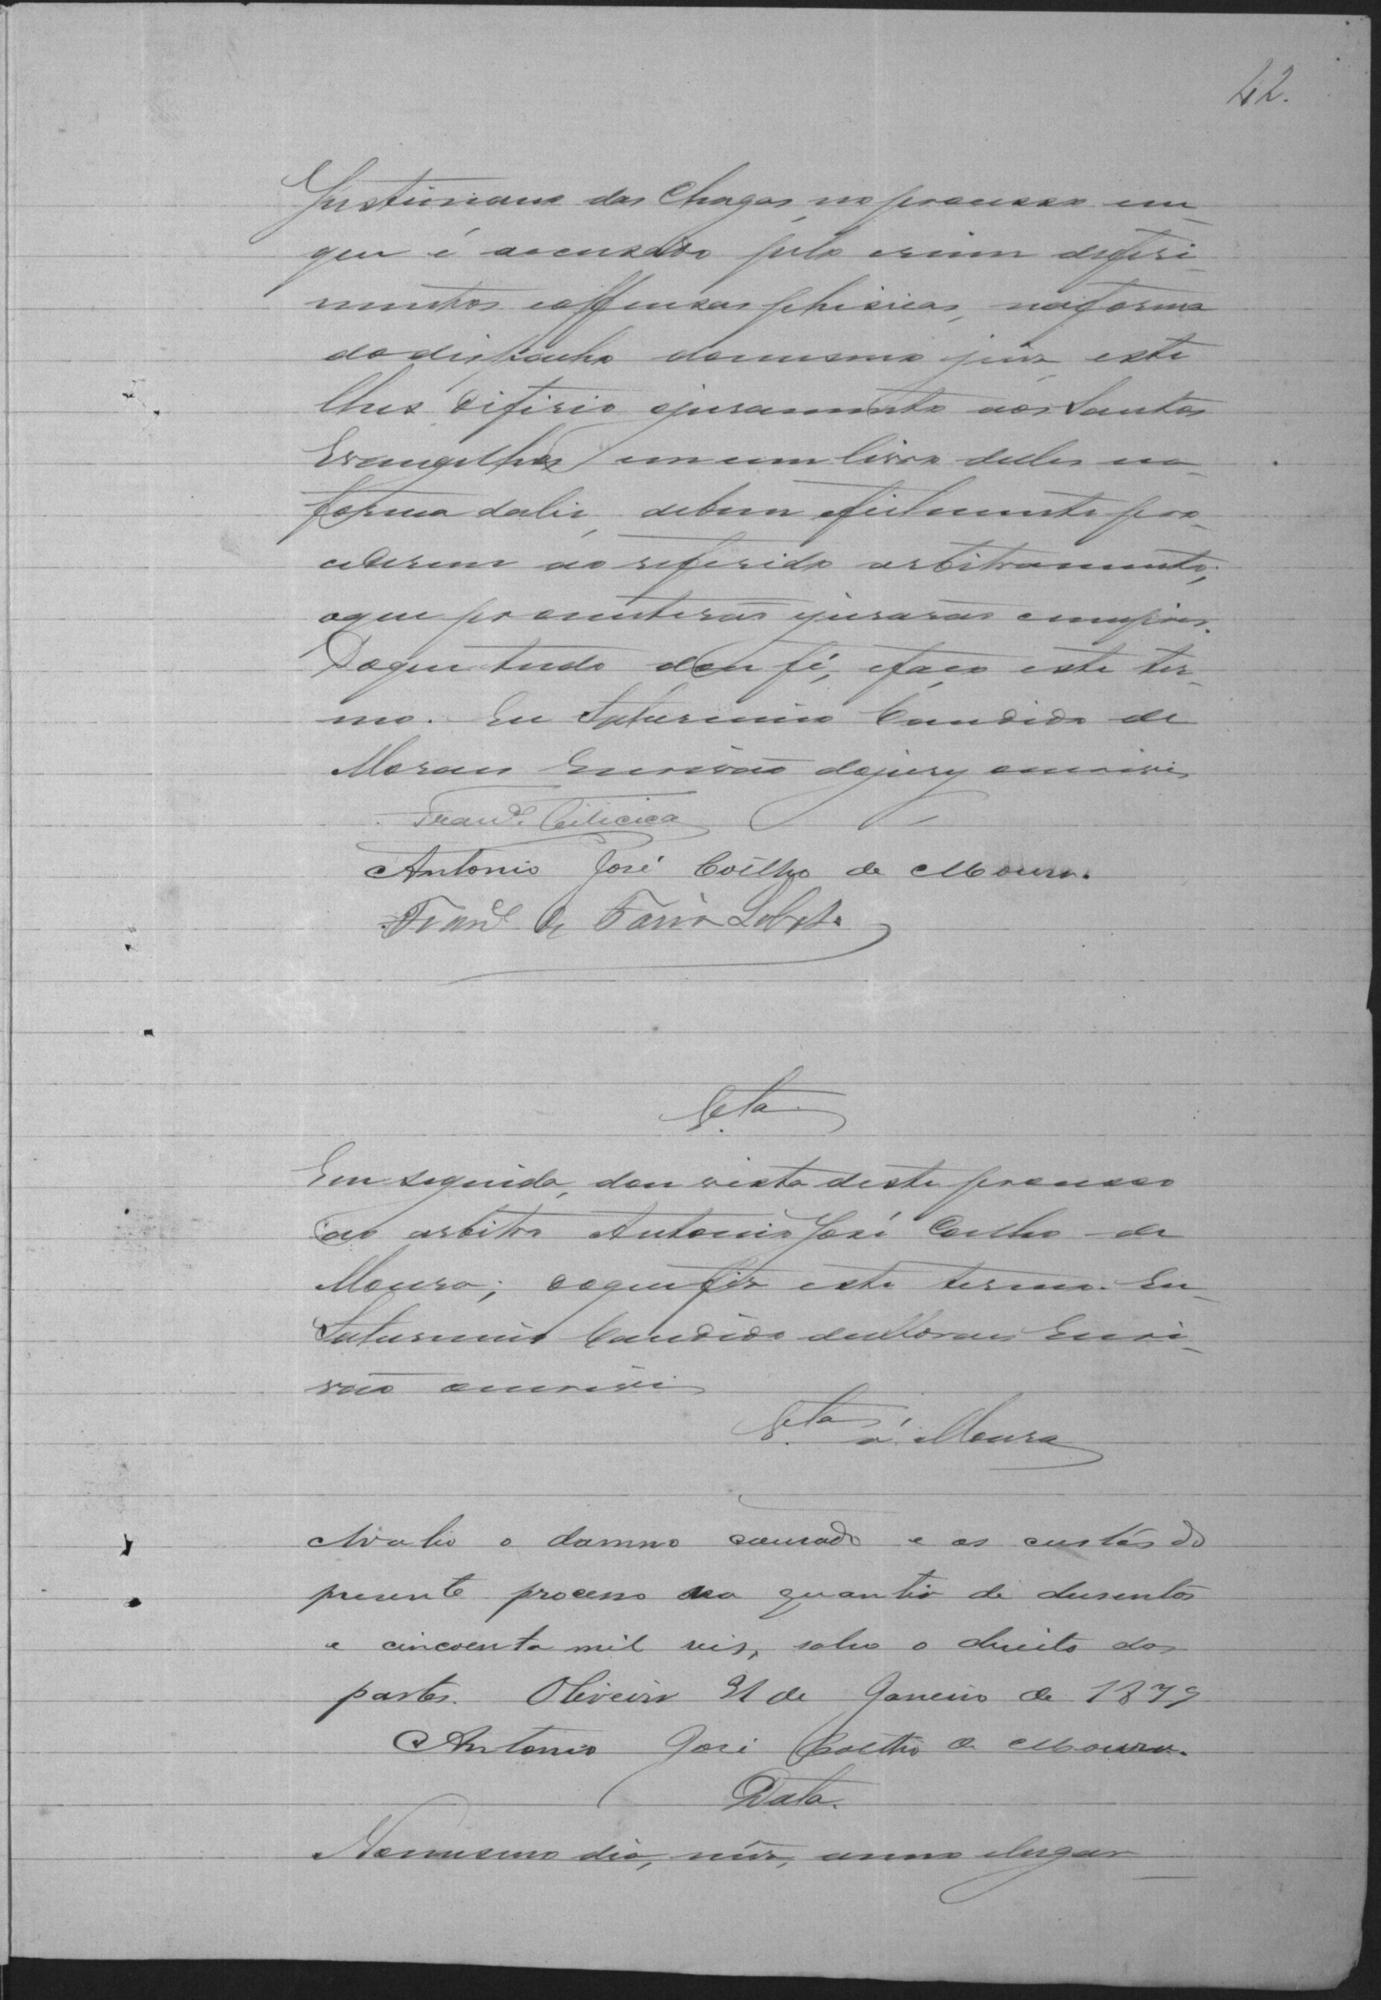 42.
Justiniano das Chagas, no processo em
que é accusado pelo crime deferi-
mentos eoffensas phisicas, naforma
dodespacho domesmo juiz, este
lhes diferio ojuramento aos Santos
Evangelhos em um livro delles na
forma dalei, debem efielmente pro-
cederem ao referido arbitramento;
oque prometerão ejurarão cumprir.
Doque tudo dou fé, efaço este ter-
mo. Eu Saturnino Candido de
Moraes Escrivão dojury oescrevi
Franco.
Antonio José Coêlho de Moura.
Franco de Faria Lobato
Vta
Em seguida, dou vista deste processo
ao arbitro Antonio José Coelho de
Moura; doque fiz este termo. Eu
Saturnino Candido deMoraes Escri-
vão oescrevi
Vta a Moura
Avalio o damno causado e as custas do
presente processo na quantia de dusentos
e cincoenta mil reis, salvo o direito das
partes. Oliveira 31 de Janeiro de 1879
Antonio José Coelho de Moura.
Data.
Nomesmo dia, mês, anno elugar